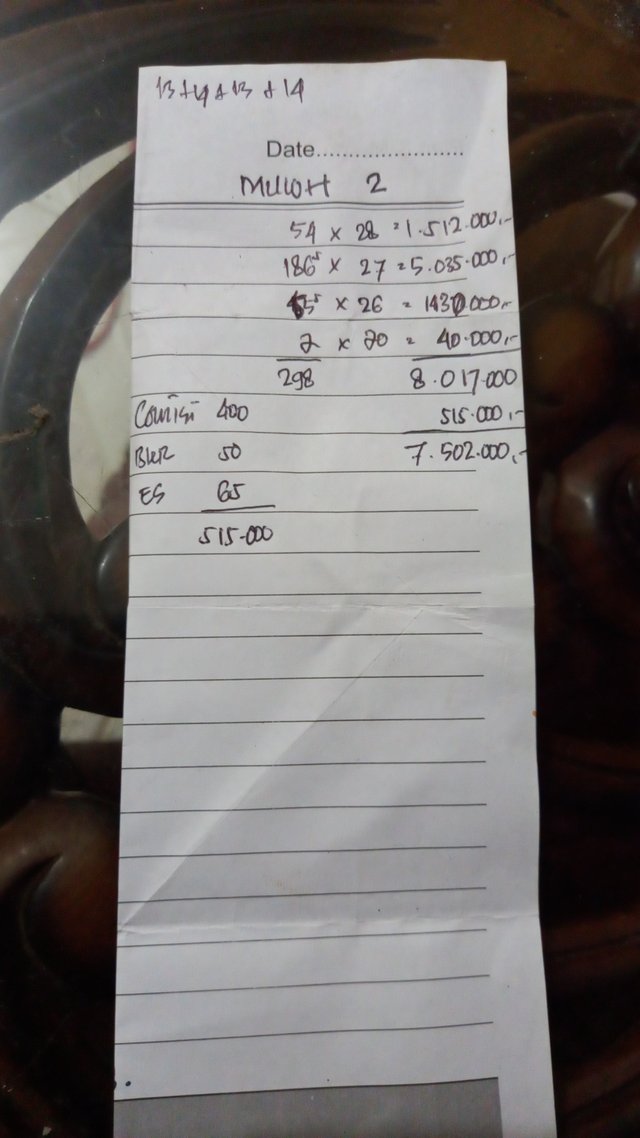 13 + 14 + 13 + 14
Date......................
2
54 × 28 = 1.512.000,-
186⁵ × 27 = 5.035.000,-
55⁵ × 26 = 1430.000,-
2 × 20 = 40.000,-
298 8.017.000
Comisi 400 515.000,-
BKR 50 7.502.000,-
ES 65
515.000